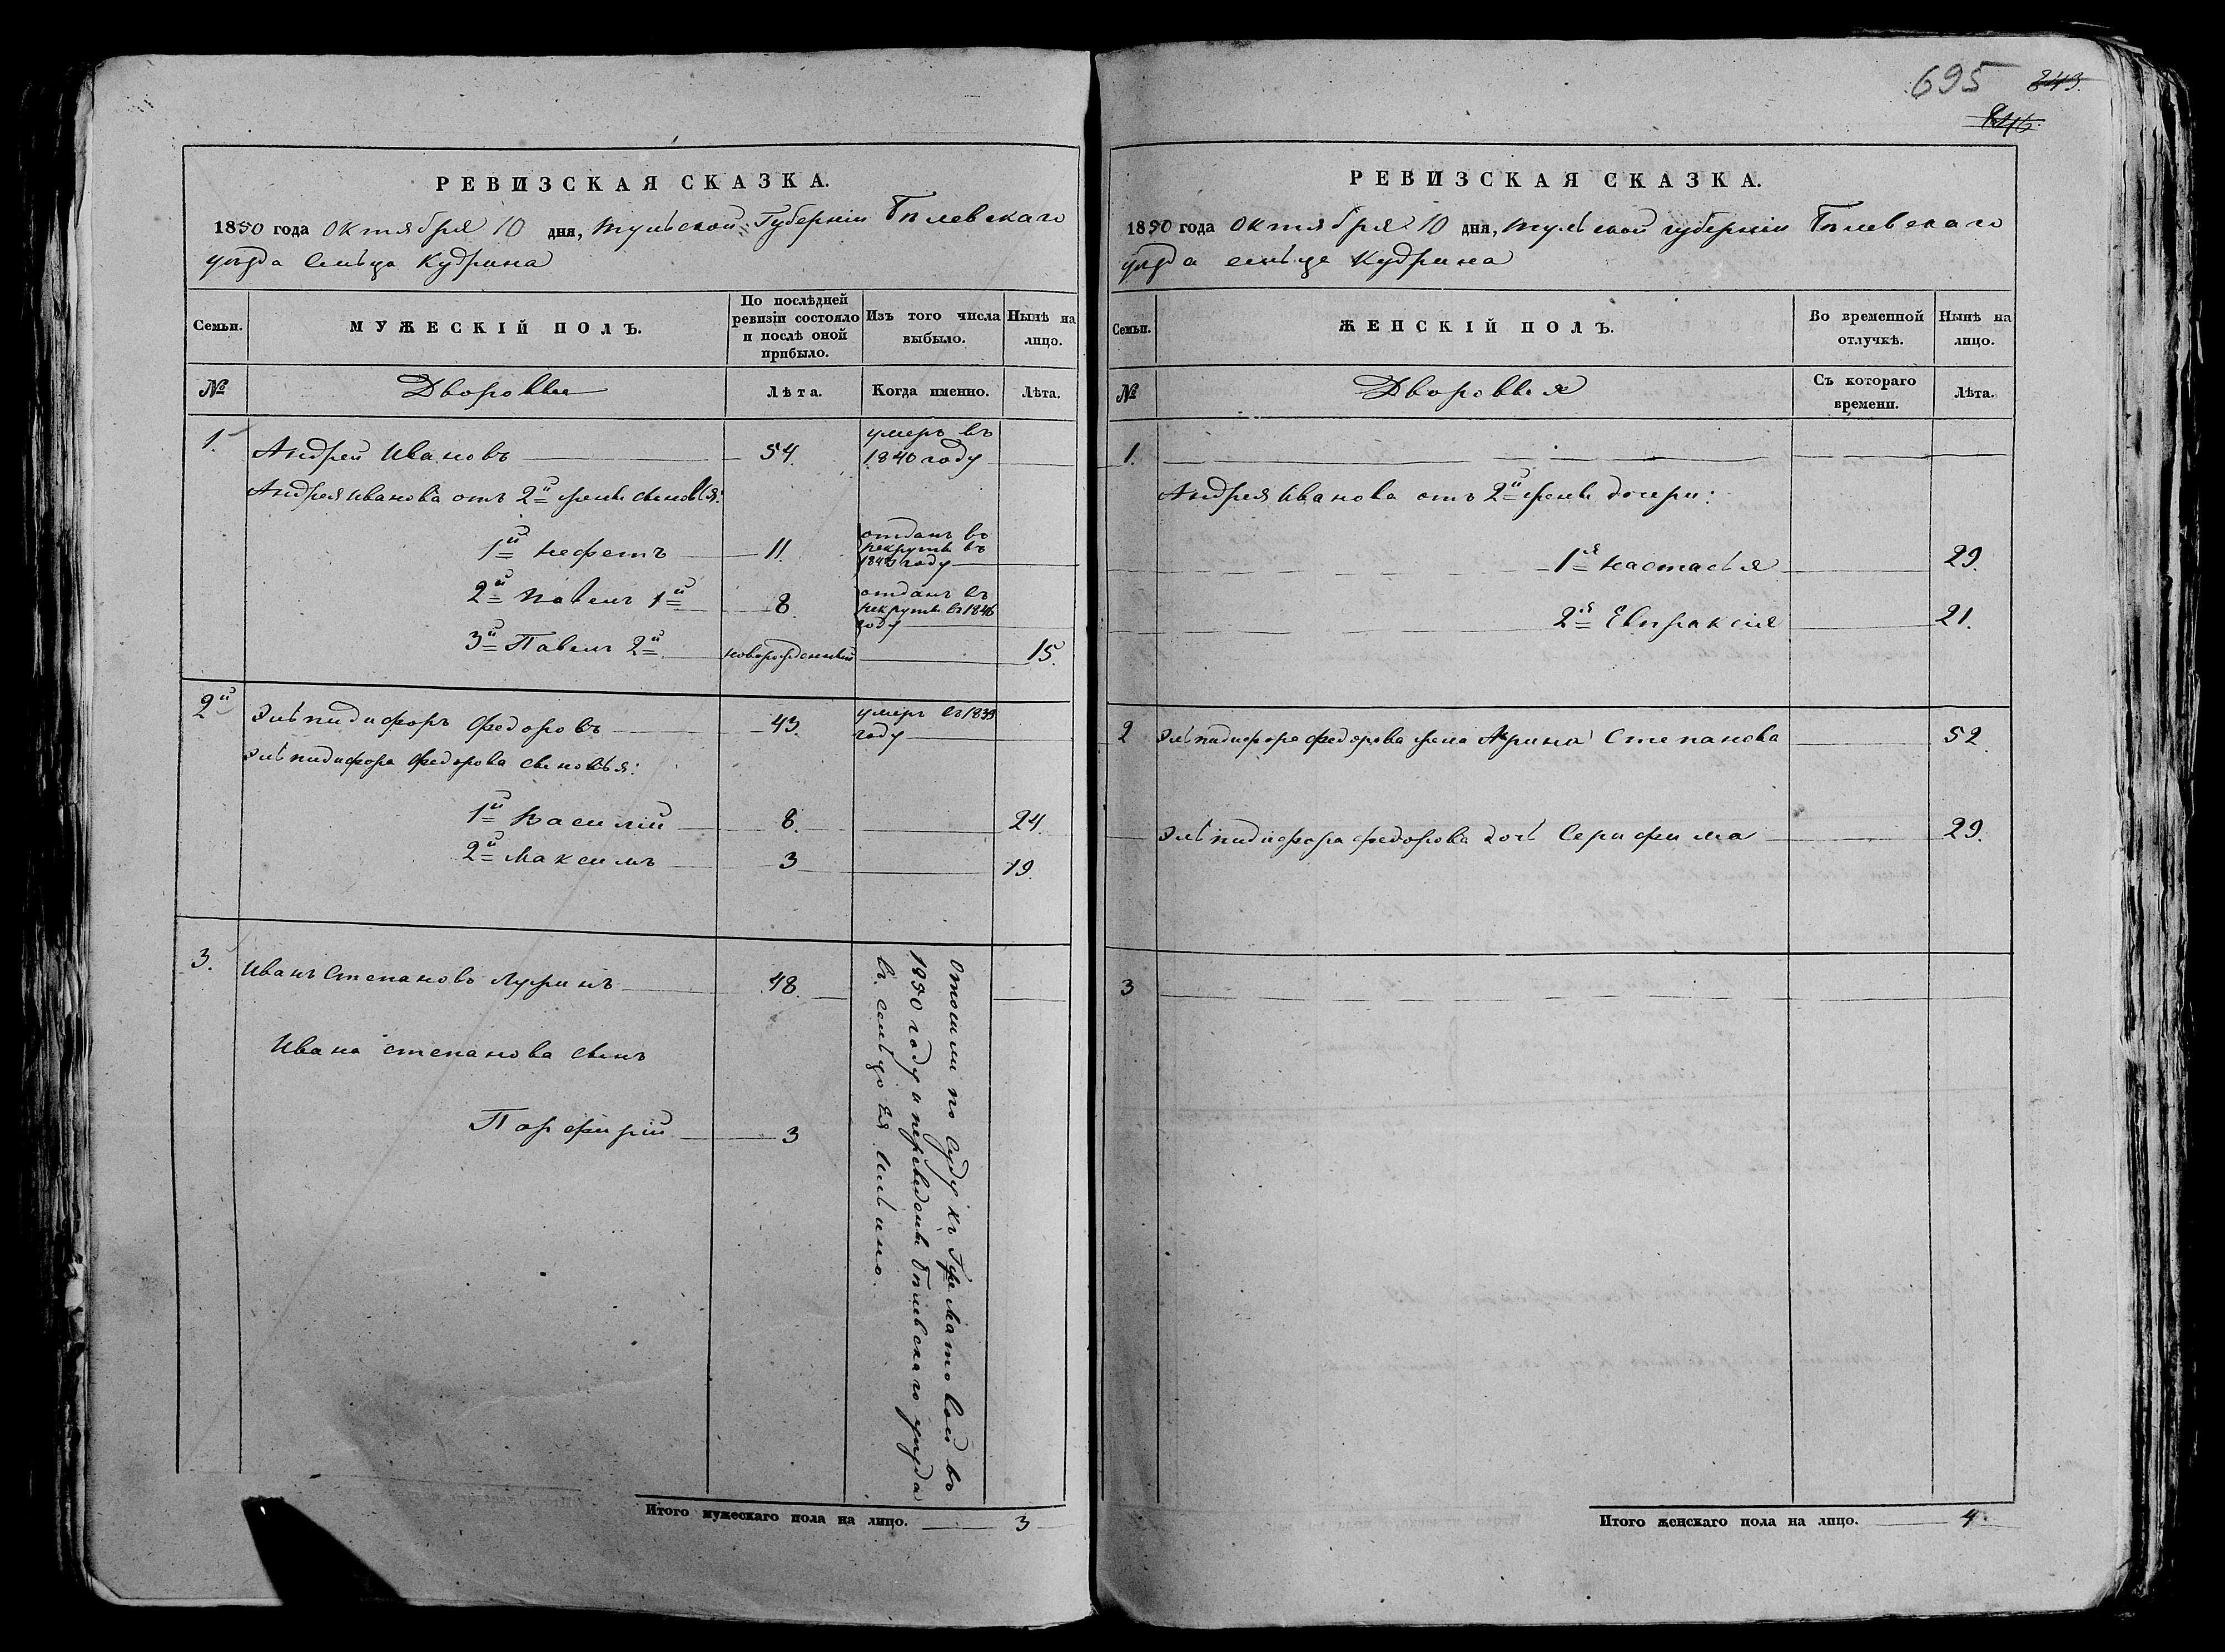 695 843.
846.
РЕВИЗСКАЯ СКАЗКА.
1850 года Октября 10 дня, Тульской Губерніи Бѣлевскаго
уѣзда Сельца Кудрина
Семьи.
МУЖЕСКІЙ ПОЛЪ.
По послѣдней ревизіи состояло и послѣ оной прибыло.
Изъ того числа выбыло.
Нынѣ на лицо.
№
Дворовые
Лѣта.
Когда именно.
Лѣта.
1. Андрей Ивановъ 54. умеръ въ 1840 году
Андрея Иванова отъ 2й жены сыновья:
1й Нефетъ 11. отданъ въ рекруты въ году
2й Павелъ 1й 8. отданъ въ рекруты въ 1846 году
3й Павелъ 2й новорожденный 15.
2й Эльпидифоръ Федоровъ 43. умеръ въ 1839 году
Эльпидифора Федорова сыновья:
1й Василій 8. 24.
2й Максимъ 3 19.
3. Иванъ Степановъ 48.
Ивана Степанова сынъ
Порфирій 3
Отошли по суду къ Гже Матовой въ
1850 году и переведены Бѣлевскаго уѣзда
въ сельцо
Итого мужескаго пола на лицо. 3
РЕВИЗСКАЯ СКАЗКА.
1850 года Октября 10 дня, Тульской губерніи Бѣлевскаго
уѣзда сельца Кудрина
Семьи.
ЖЕНСКІЙ ПОЛЪ.
Во временной отлучкѣ.
Нынѣ на лицо.
№
Дворовыя
Съ котораго времени.
Лѣта.
1.
Андрея Иванова отъ 2й жены дочери:
1я Настасья 29.
2я Евпраксія 21.
2 Эльпидифора Федорова жена Арина Степанова 52.
Эльпидифора Федорова дочь Серафима 29.
3
Итого женскаго пола на лицо. 4